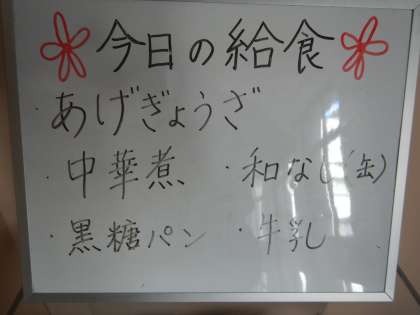 今日の給食
・あげぎょうざ
・中華煮 ・和なし(缶)
・黒糖パン ・牛乳